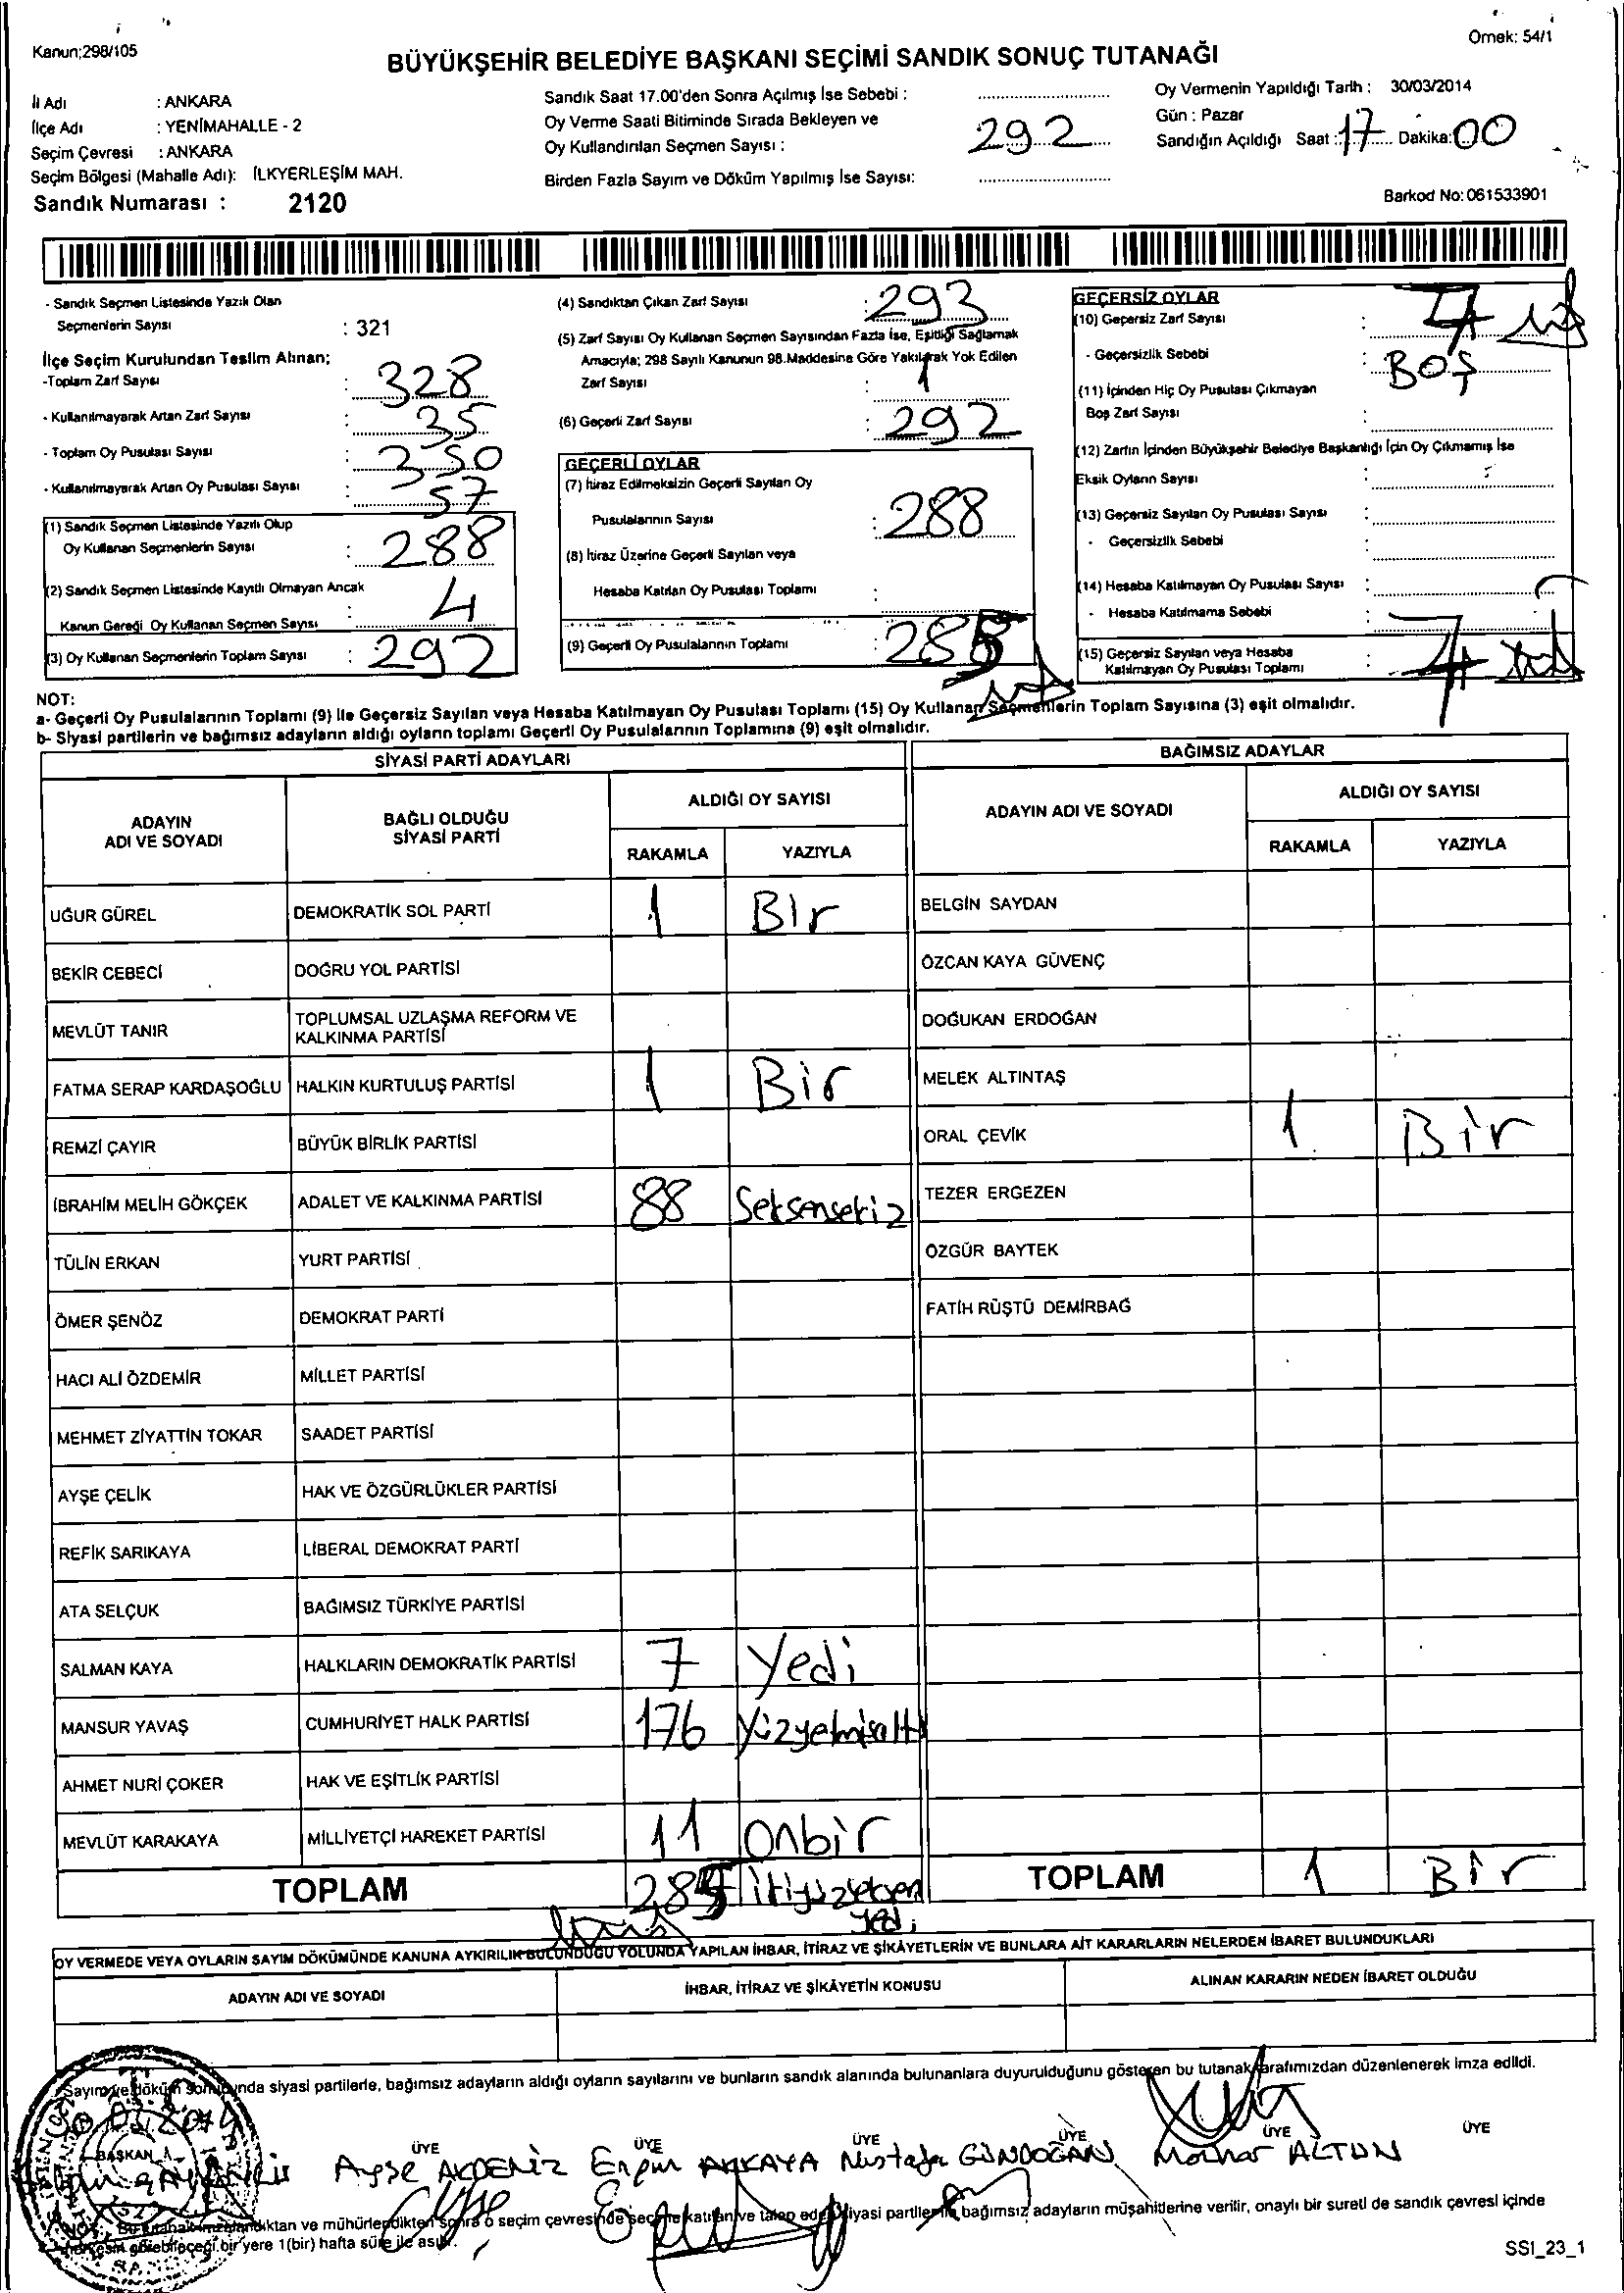 Kanun;298/105
Örnek: 54/1
BÜYÜKŞEHİR BELEDİYE BAŞKANI SEÇİMİ SANDIK SONUÇ TUTANAĞI
İl Adı : ANKARA
İlçe Adı : YENİMAHALLE - 2
Seçim Çevresi : ANKARA
Seçim Bölgesi (Mahalle Adı): İLKYERLEŞİM MAH.
Sandık Numarası : 2120
Sandık Saat 17.00'den Sonra Açılmış İse Sebebi :
Oy Verme Saati Bitiminde Sırada Bekleyen ve
Oy Kullandırılan Seçmen Sayısı : 292
Birden Fazla Sayım ve Döküm Yapılmış İse Sayısı:
Oy Vermenin Yapıldığı Tarih : 30/03/2014
Gün : Pazar
Sandığın Açıldığı Saat : 17 Dakika: 00
Barkod No: 061533901
- Sandık Seçmen Listesinde Yazılı Olan
Seçmenlerin Sayısı : 321
İlçe Seçim Kurulundan Teslim Alınan;
-Toplam Zarf Sayısı : 328
- Kullanılmayarak Artan Zarf Sayısı : 35
- Toplam Oy Pusulası Sayısı : 350
- Kullanılmayarak Artan Oy Pusulası Sayısı : 57
(1) Sandık Seçmen Listesinde Yazılı Olup
Oy Kullanan Seçmenlerin Sayısı : 288
(2) Sandık Seçmen Listesinde Kayıtlı Olmayan Ancak
Kanun Gereği Oy Kullanan Seçmen Sayısı : 4
(3) Oy Kullanan Seçmenlerin Toplam Sayısı : 292
(4) Sandıktan Çıkan Zarf Sayısı : 293
(5) Zarf Sayısı Oy Kullanan Seçmen Sayısından Fazla İse, Eşitliği Sağlamak
Amacıyla; 298 Sayılı Kanunun 98.Maddesine Göre Yakılarak Yok Edilen
Zarf Sayısı : 1
(6) Geçerli Zarf Sayısı : 292
GEÇERLİ OYLAR
(7) İtiraz Edilmeksizin Geçerli Sayılan Oy
Pusulalarının Sayısı : 288
(8) İtiraz Üzerine Geçerli Sayılan veya
Hesaba Katılan Oy Pusulası Toplamı :
(9) Geçerli Oy Pusulalarının Toplamı : 285
GEÇERSİZ OYLAR
(10) Geçersiz Zarf Sayısı : 7
- Geçersizlik Sebebi : BOŞ
(11) İçinden Hiç Oy Pusulası Çıkmayan
Boş Zarf Sayısı :
(12) Zarfın İçinden Büyükşehir Belediye Başkanlığı İçin Oy Çıkmamış İse
Eksik Oyların Sayısı :
(13) Geçersiz Sayılan Oy Pusulası Sayısı :
- Geçersizlik Sebebi :
(14) Hesaba Katılmayan Oy Pusulası Sayısı :
- Hesaba Katılmama Sebebi :
(15) Geçersiz Sayılan veya Hesaba
Katılmayan Oy Pusulası Toplamı : 7
NOT:
a- Geçerli Oy Pusulalarının Toplamı (9) ile Geçersiz Sayılan veya Hesaba Katılmayan Oy Pusulası Toplamı (15) Oy Kullanan Seçmenlerin Toplam Sayısına (3) eşit olmalıdır.
b- Siyasi partilerin ve bağımsız adayların aldığı oyların toplamı Geçerli Oy Pusulalarının Toplamına (9) eşit olmalıdır.
SİYASİ PARTİ ADAYLARI
ADAYIN ADI VE SOYADI BAĞLI OLDUĞU SİYASİ PARTİ ALDIĞI OY SAYISI RAKAMLA YAZIYLA
UĞUR GÜREL DEMOKRATİK SOL PARTİ 1 Bir
BEKİR CEBECİ DOĞRU YOL PARTİSİ
MEVLÜT TANIR TOPLUMSAL UZLAŞMA REFORM VE KALKINMA PARTİSİ
FATMA SERAP KARDAŞOĞLU HALKIN KURTULUŞ PARTİSİ 1 Bir
REMZİ ÇAYIR BÜYÜK BİRLİK PARTİSİ
İBRAHİM MELİH GÖKÇEK ADALET VE KALKINMA PARTİSİ 88 Seksensekiz
TÜLİN ERKAN YURT PARTİSİ
ÖMER ŞENÖZ DEMOKRAT PARTİ
HACI ALİ ÖZDEMİR MİLLET PARTİSİ
MEHMET ZİYATTİN TOKAR SAADET PARTİSİ
AYŞE ÇELİK HAK VE ÖZGÜRLÜKLER PARTİSİ
REFİK SARIKAYA LİBERAL DEMOKRAT PARTİ
ATA SELÇUK BAĞIMSIZ TÜRKİYE PARTİSİ
SALMAN KAYA HALKLARIN DEMOKRATİK PARTİSİ 7 Yedi
MANSUR YAVAŞ CUMHURİYET HALK PARTİSİ 176 Yüzyetmişaltı
AHMET NURİ ÇOKER HAK VE EŞİTLİK PARTİSİ
MEVLÜT KARAKAYA MİLLİYETÇİ HAREKET PARTİSİ 11 Onbir
TOPLAM ikiyüzseksen
yedi
BAĞIMSIZ ADAYLAR
ADAYIN ADI VE SOYADI ALDIĞI OY SAYISI RAKAMLA YAZIYLA
BELGİN SAYDAN
ÖZCAN KAYA GÜVENÇ
DOĞUKAN ERDOĞAN
MELEK ALTINTAŞ
ORAL ÇEVİK 1 Bir
TEZER ERGEZEN
ÖZGÜR BAYTEK
FATİH RÜŞTÜ DEMİRBAĞ
TOPLAM 1 Bir
OY VERMEDE VEYA OYLARIN SAYIM DÖKÜMÜNDE KANUNA AYKIRILIK BULUNDUĞU YOLUNDA YAPILAN İHBAR, İTİRAZ VE ŞİKÂYETLERİN VE BUNLARA AİT KARARLARIN NELERDEN İBARET BULUNDUKLARI
ADAYIN ADI VE SOYADI İHBAR, İTİRAZ VE ŞİKÂYETİN KONUSU ALINAN KARARIN NEDEN İBARET OLDUĞU
Sayım ve döküm sonucunda siyasi partilerle, bağımsız adayların aldığı oyların sayılarını ve bunların sandık alanında bulunanlara duyurulduğunu gösteren bu tutanak tarafımızdan düzenlenerek imza edildi.
BAŞKAN ÜYE ÜYE ÜYE ÜYE ÜYE ÜYE
Ayşe AKDENİZ Ergün AKKAYA Mustafa GÜNDOĞAN ALTUN
NOT: Bu tutanak imzalandıktan ve mühürlendikten sonra o seçim çevresinde seçime katılan ve talep eden siyasi partilerin, bağımsız adayların müşahitlerine verilir, onaylı bir sureti de sandık çevresi içinde
herkesin görebileceği bir yere 1(bir) hafta süre ile asılır.
SSI_23_1